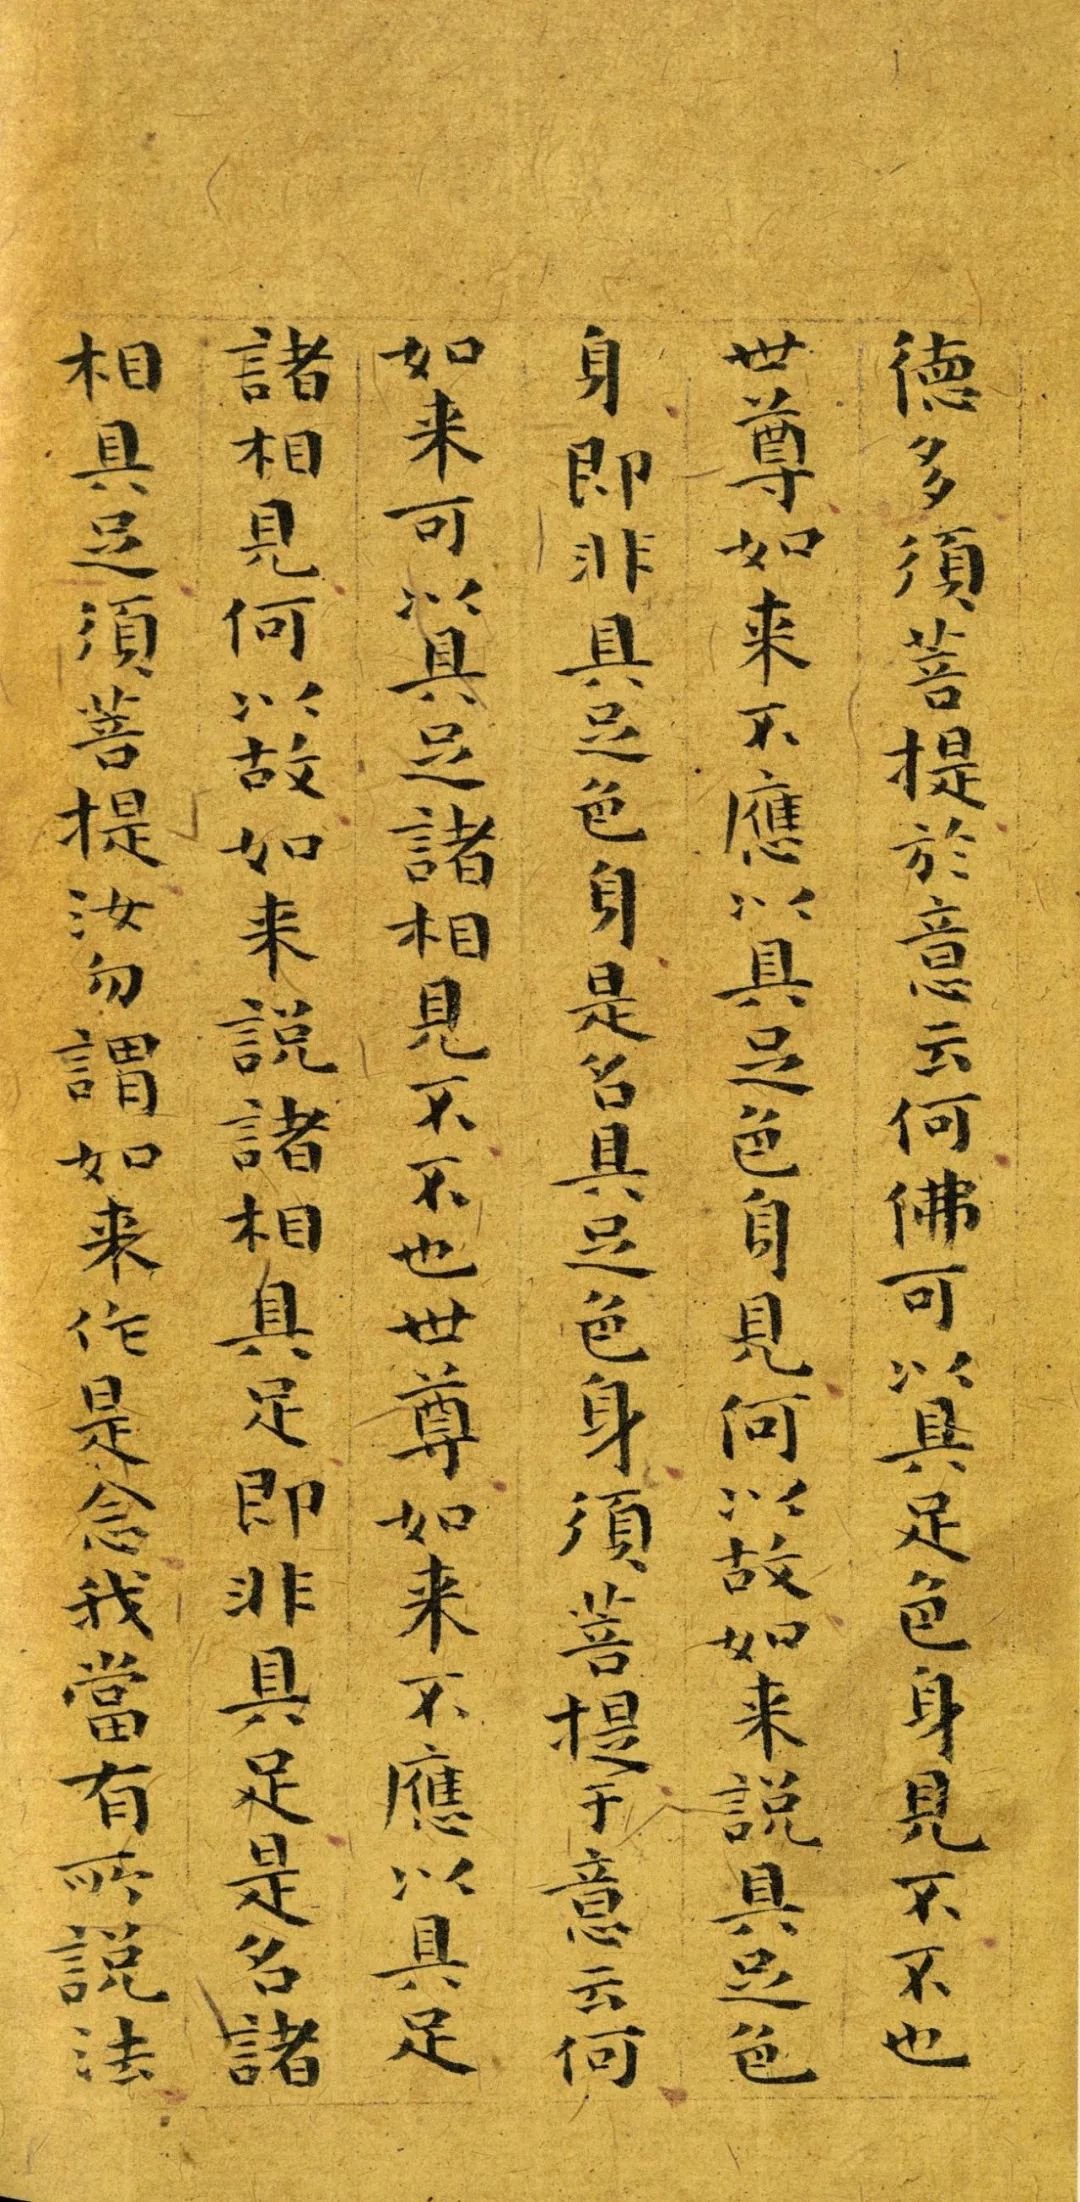 德多須菩提於意云何佛可以具足色身見不不也
世尊如来不應以具足色身見何以故如来説具足色
身即非具足色身是名具足色身須菩提于意云何
如来可以具足諸相見不不也世尊如来不應以具足
諸相見何以故如来説諸相具足即非具足是名諸
相具足須菩提汝勿謂如来作是念我當有所説法